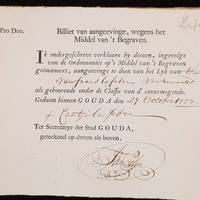 Pro Deo.
Billiet van aangeevinge, wegens het
Middel van 't Begraven.
Ik ondergeschreve verklaare by deezen, ingevolge
van de Ordonnantie op 't Middel van 't Begraven
geëmaneert, aangeevinge te doen van het Lyk van
als gehorende onder de Classis van d' onvermogende.
Gedaan binnen GOUDA den 27 October 1773.
Ter Secretarye der Stad GOUDA,
geteekend op datum als boven.